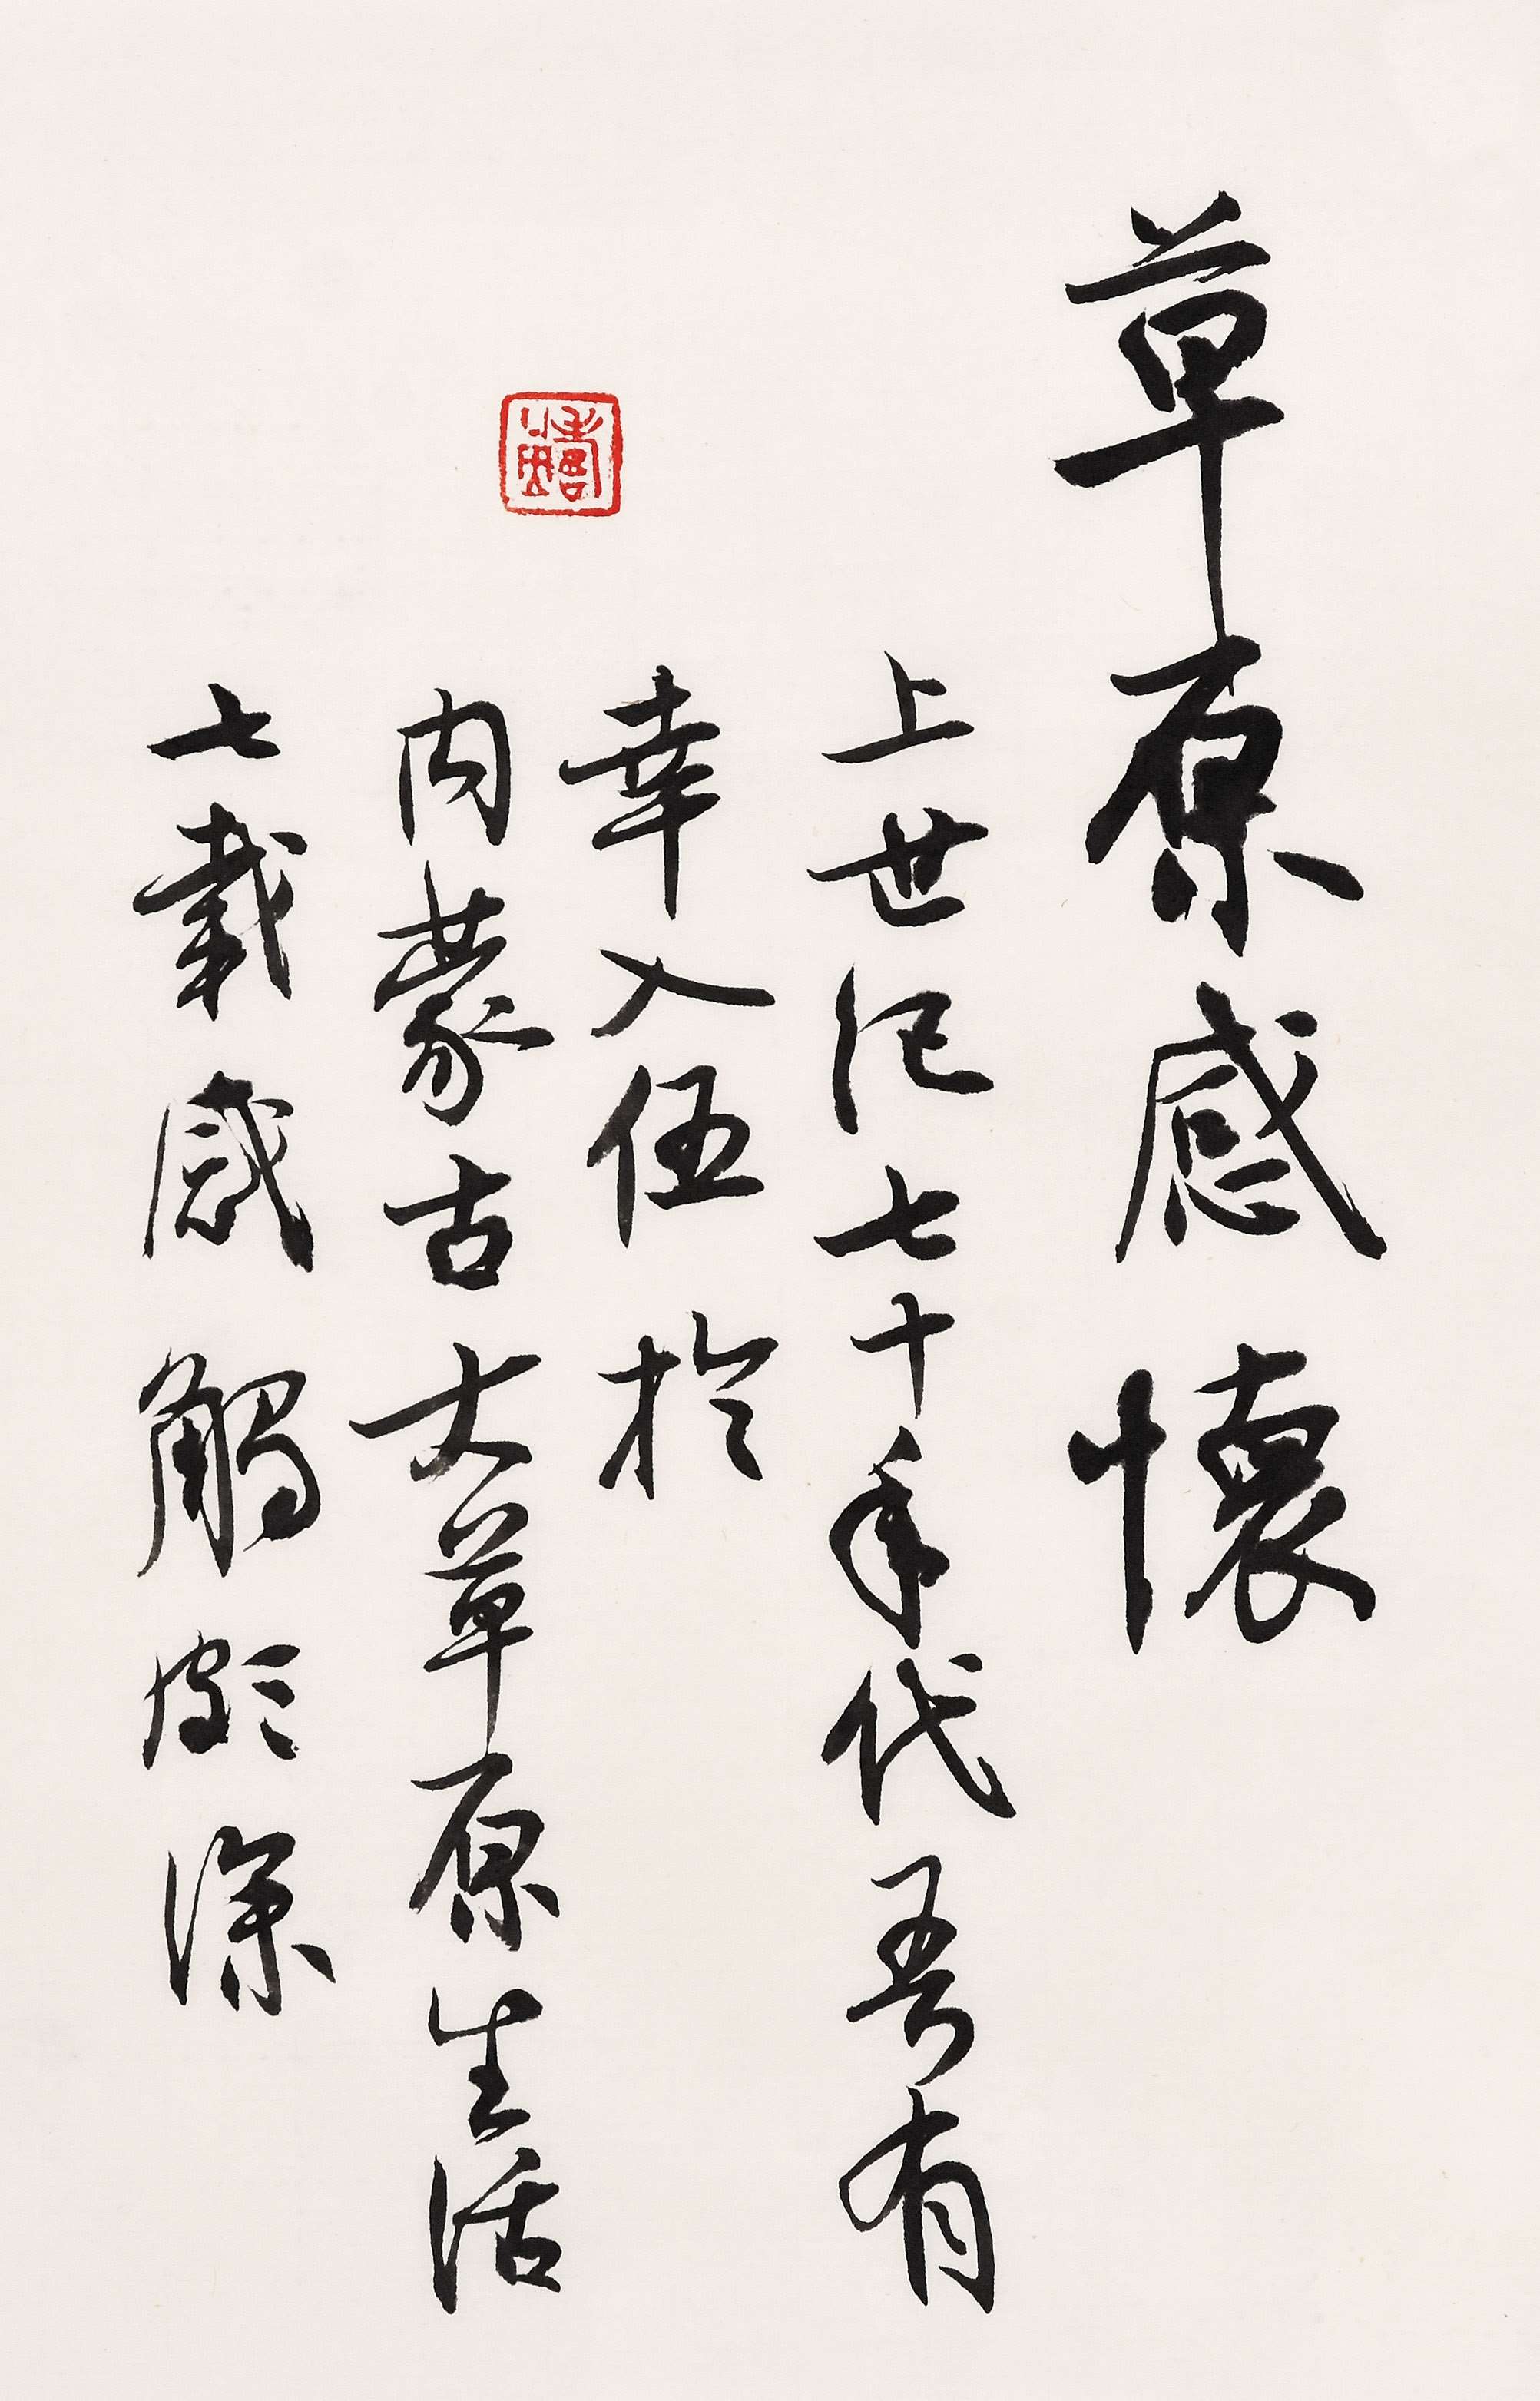 草原感懷
上世纪七十年代吾有
幸入伍於
内蒙古大草原生活
七載感觸頗深